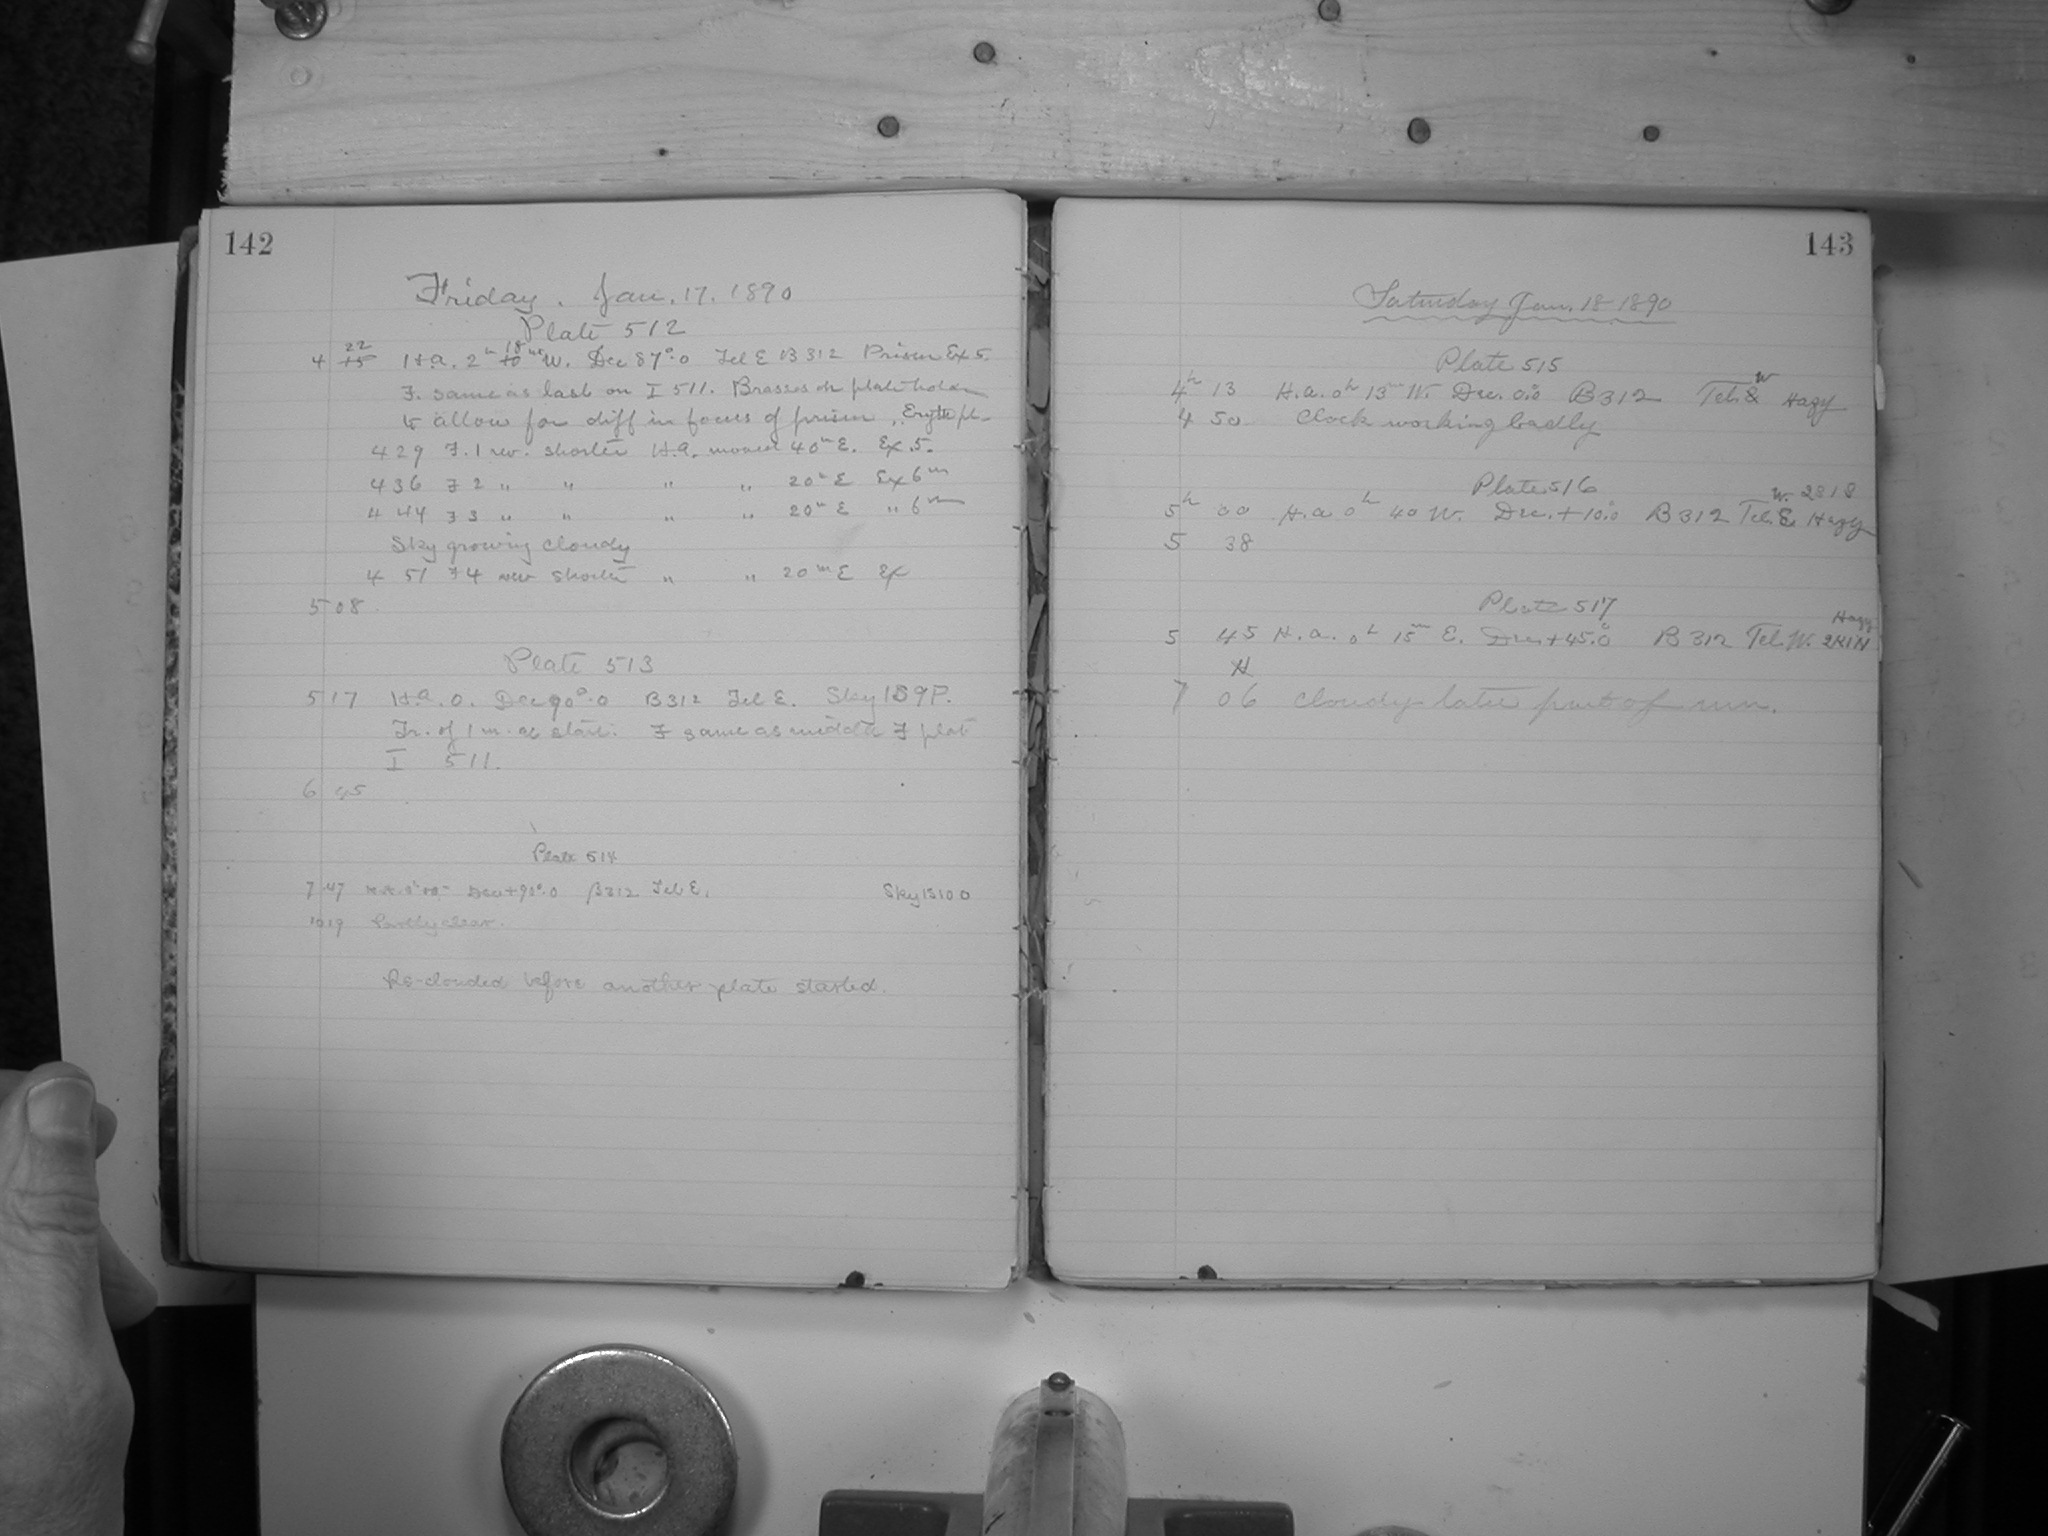 142
Friday. Jan. 17. 1890
Plate 512
4 22 15 H.a. 2h 18 10 m W. Dec 87°.0 Tel E B 312 Prism Ex 5.
F. same as last on I 511. Brasses on plateholder
to allow for diff in focus of prism
4 29 F. 1 rev. shorter H.a. moved 40m E. Ex. 5.
4 36 F 2 " " " " 20m E Ex 6m
4 44 F 3 " " " " 20m E " 6m
Sky growing cloudy
4 51 F 4 rev shorter " " 20m E Ex
5 08
Plate 513
5 17 H.a. 0. Dec 90°.0 B 312 Tel E. Sky
Tr. of 1 m. at start. F same as middle F plate
I 511.
6 45
Plate 514
7 47 Dec + 90°.0 B 312 Tel E. Sky 13100
10 19 Partly clear.
Re-clouded before another plate started.
143
Saturday Jan. 18 1890
Plate 515
4h 13 H.a. 0h 13m W. Dec. 0.°0 B 312 Tel. E W Hagy
4 50 Clock working badly
Plate 516
5h 00 H.a 0h 40 W. Dec. + 10.°0 B 312 Tel. E W. Hagy
5 38
Plate 517
5 45 H.a. 0h 15m E. Dec. + 45.°0 B 312 Tel. W. Hagy
7 06 Cloudy later part of run.